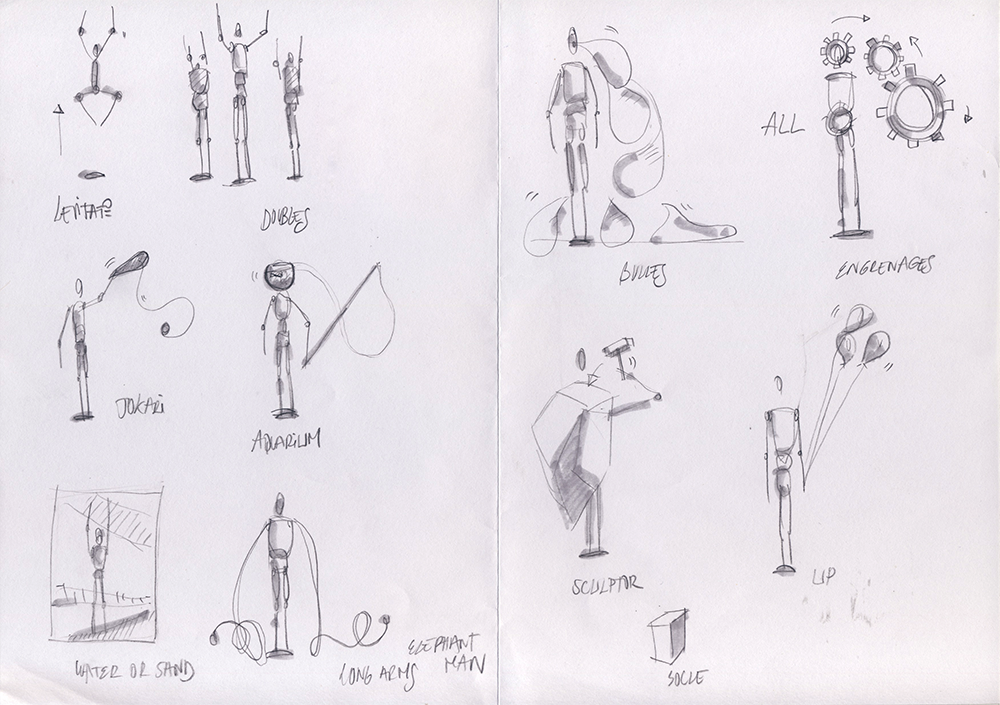 LEVITATE
DOUBLES
JOKARI
AQUARIUM
WATER OR SAND
LONG ARMS
ELEPHANT
MAN
ALL
BULLES
ENGRENAGES
SCULPTOR
UP
SOCLE